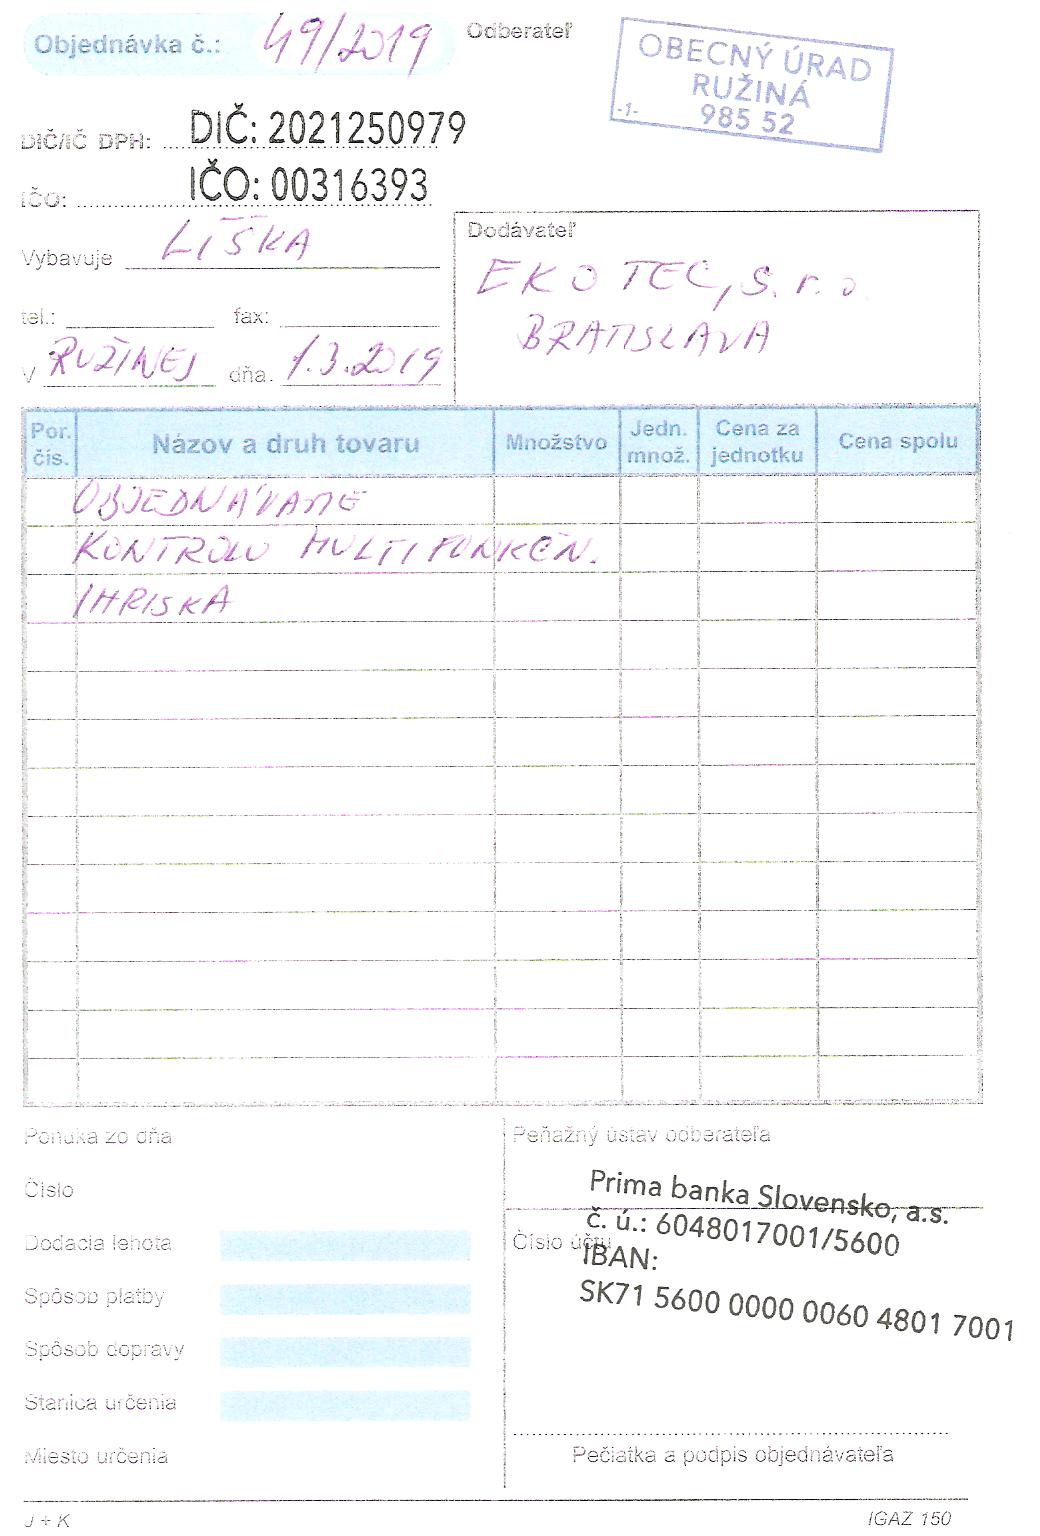 Objednávka č.: 49/2019
Odberateľ
OBECNÝ ÚRAD
RUŽINÁ
-1- 985 52
DIČ/IČ DPH: DIČ: 2021250979
IČO: IČO: 00316393
Vybavuje LÍŠKA
tel.: fax:
V RUŽINEJ dňa. 1.3.2019
Dodávateľ
EKOTEC, s.r.o.
BRATISLAVA
Por. čís. Názov a druh tovaru Množstvo Jedn. množ. Cena za jednotku Cena spolu
OBJEDNÁVAME
KONTROLU MULTIFUNKČN.
IHRISKA
Ponuka zo dňa
Číslo
Dodacia lehota
Spôsob platby
Spôsob dopravy
Stanica určenia
Miesto určenia
Peňažný ústav odberateľa
Prima banka Slovensko, a.s.
Číslo účtu
č. ú.: 6048017001/5600
IBAN:
SK71 5600 0000 0060 4801 7001
Pečiatka a podpis objednávateľa
J + K
IGAZ 150